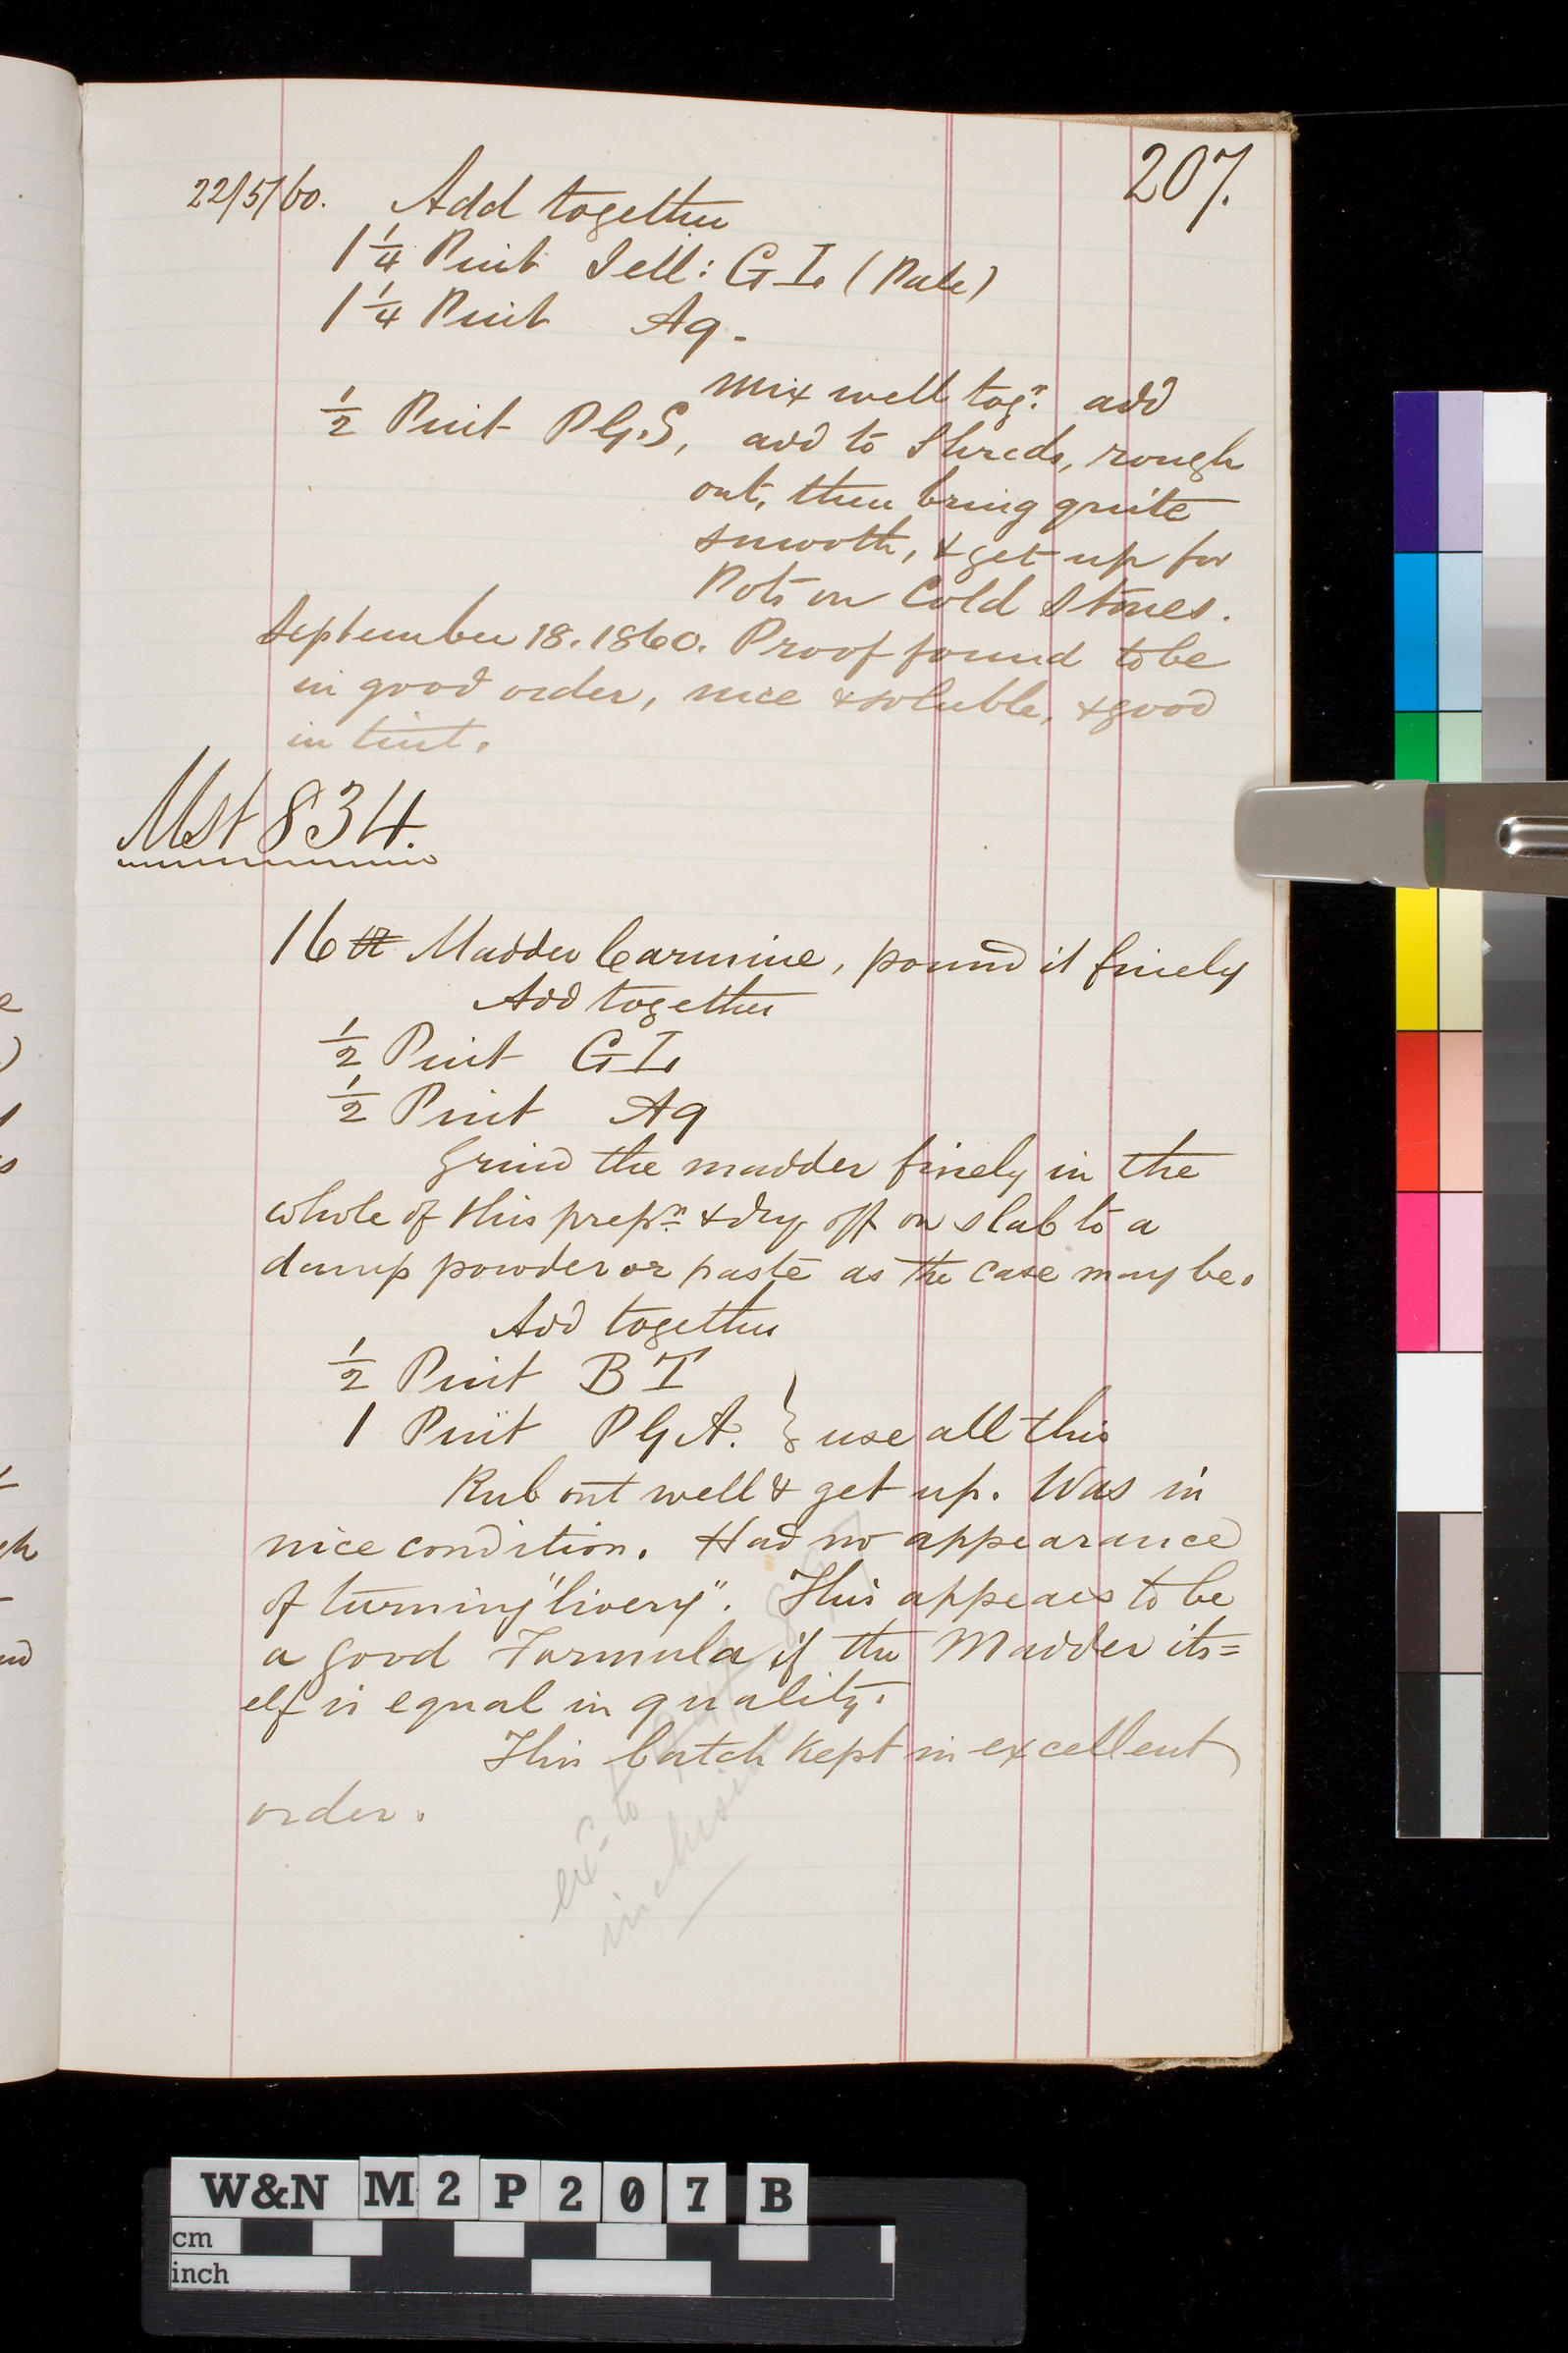 207.
22/5/60. Add together
1 1/4 Pint Sell: G I. (Pale)
1 1/4 Pint Aq.
mix well togr. add
1/2 Pint P G. S, add to Shreds, rough
out, then bring quite
smooth, & get up for
Pots on Cold Stones.
September 18. 1860. Proof found to be
in good order, nice & soluble, & good
in tint.
Mst 834.
16 lb Madder Carmine, pound it finely
Add together
1/2 Pint G I.
1/2 Pint Aq
Grind the madder finely in the
whole of this prepn. & dry off on slab to a
damp powder or paste as the case may be.
Add together
1/2 Pint B T
1 Pint P G A. } use all this
Rub out well & get up. Was in
nice condition. Had no appearance
of turning "livery". This appears to be
a good Formula if the Madder its=
elf is equal in quality.
This batch kept in excellent
order.
to
inclusive
W&N M2P207 B
cm
inch